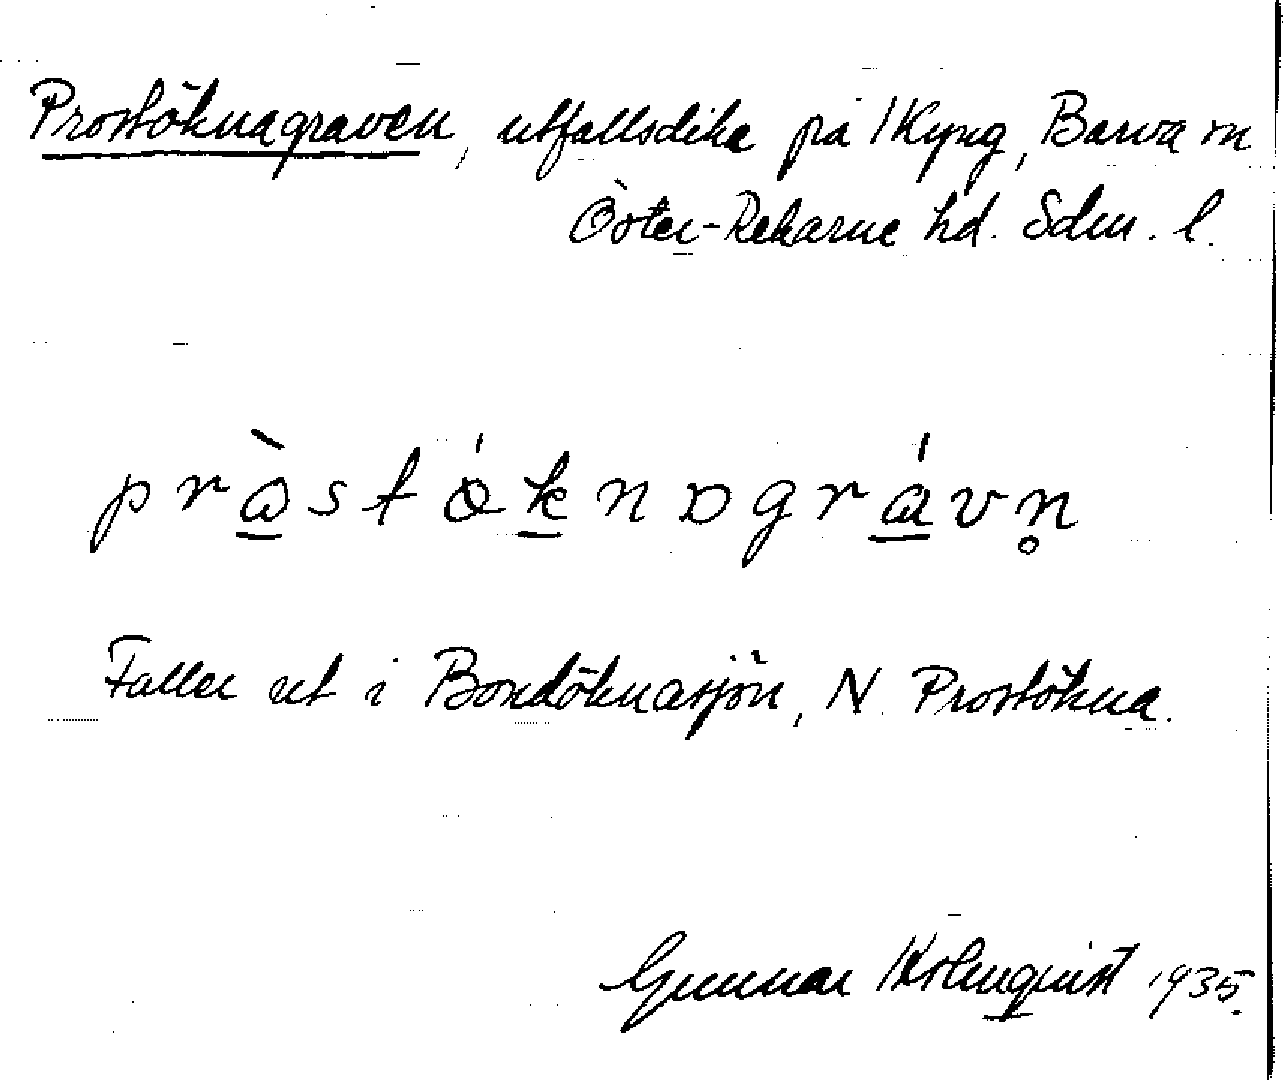 Prostöknagraven, utfallsdike på Kyng, Barva sn
Öster-Rekarne hd. Sdm. l.
pràstǿknɒgrávn̥
Faller ut i Bondöknasjön, N Prostökna.
Gunnar Holmquist 1935.